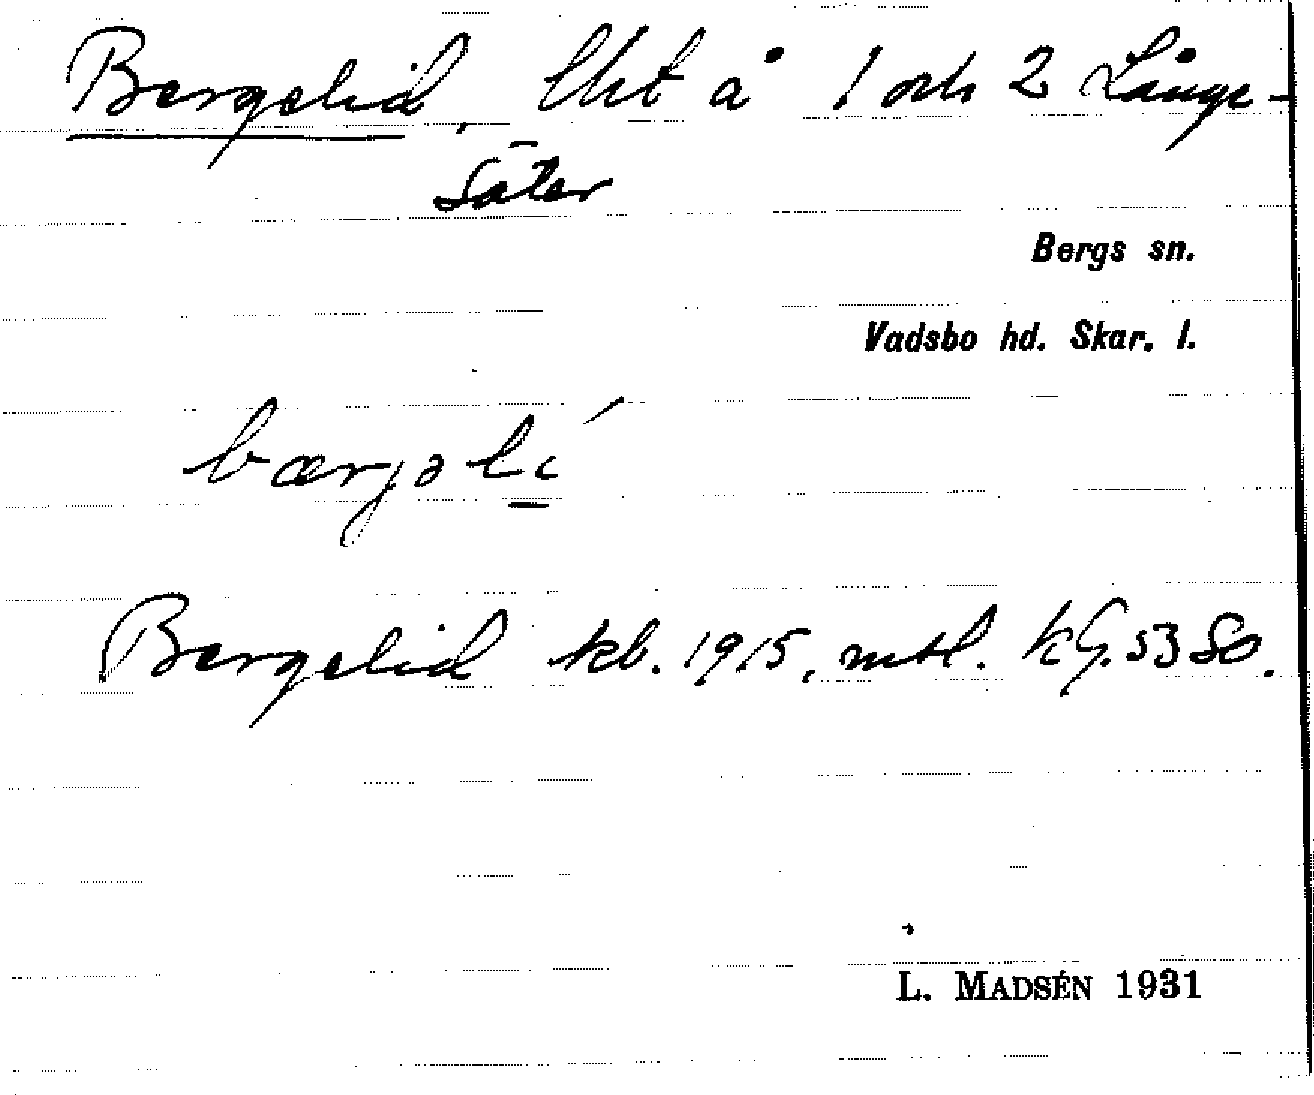 Bergelid, lht å 1 och 2 Långe-
säter
Bergs sn.
Vadsbo hd. Skar. l.
bærjəlí
Bergelid kb. 1915, mtl. kG. 53 SO.
L. MADSÉN 1931